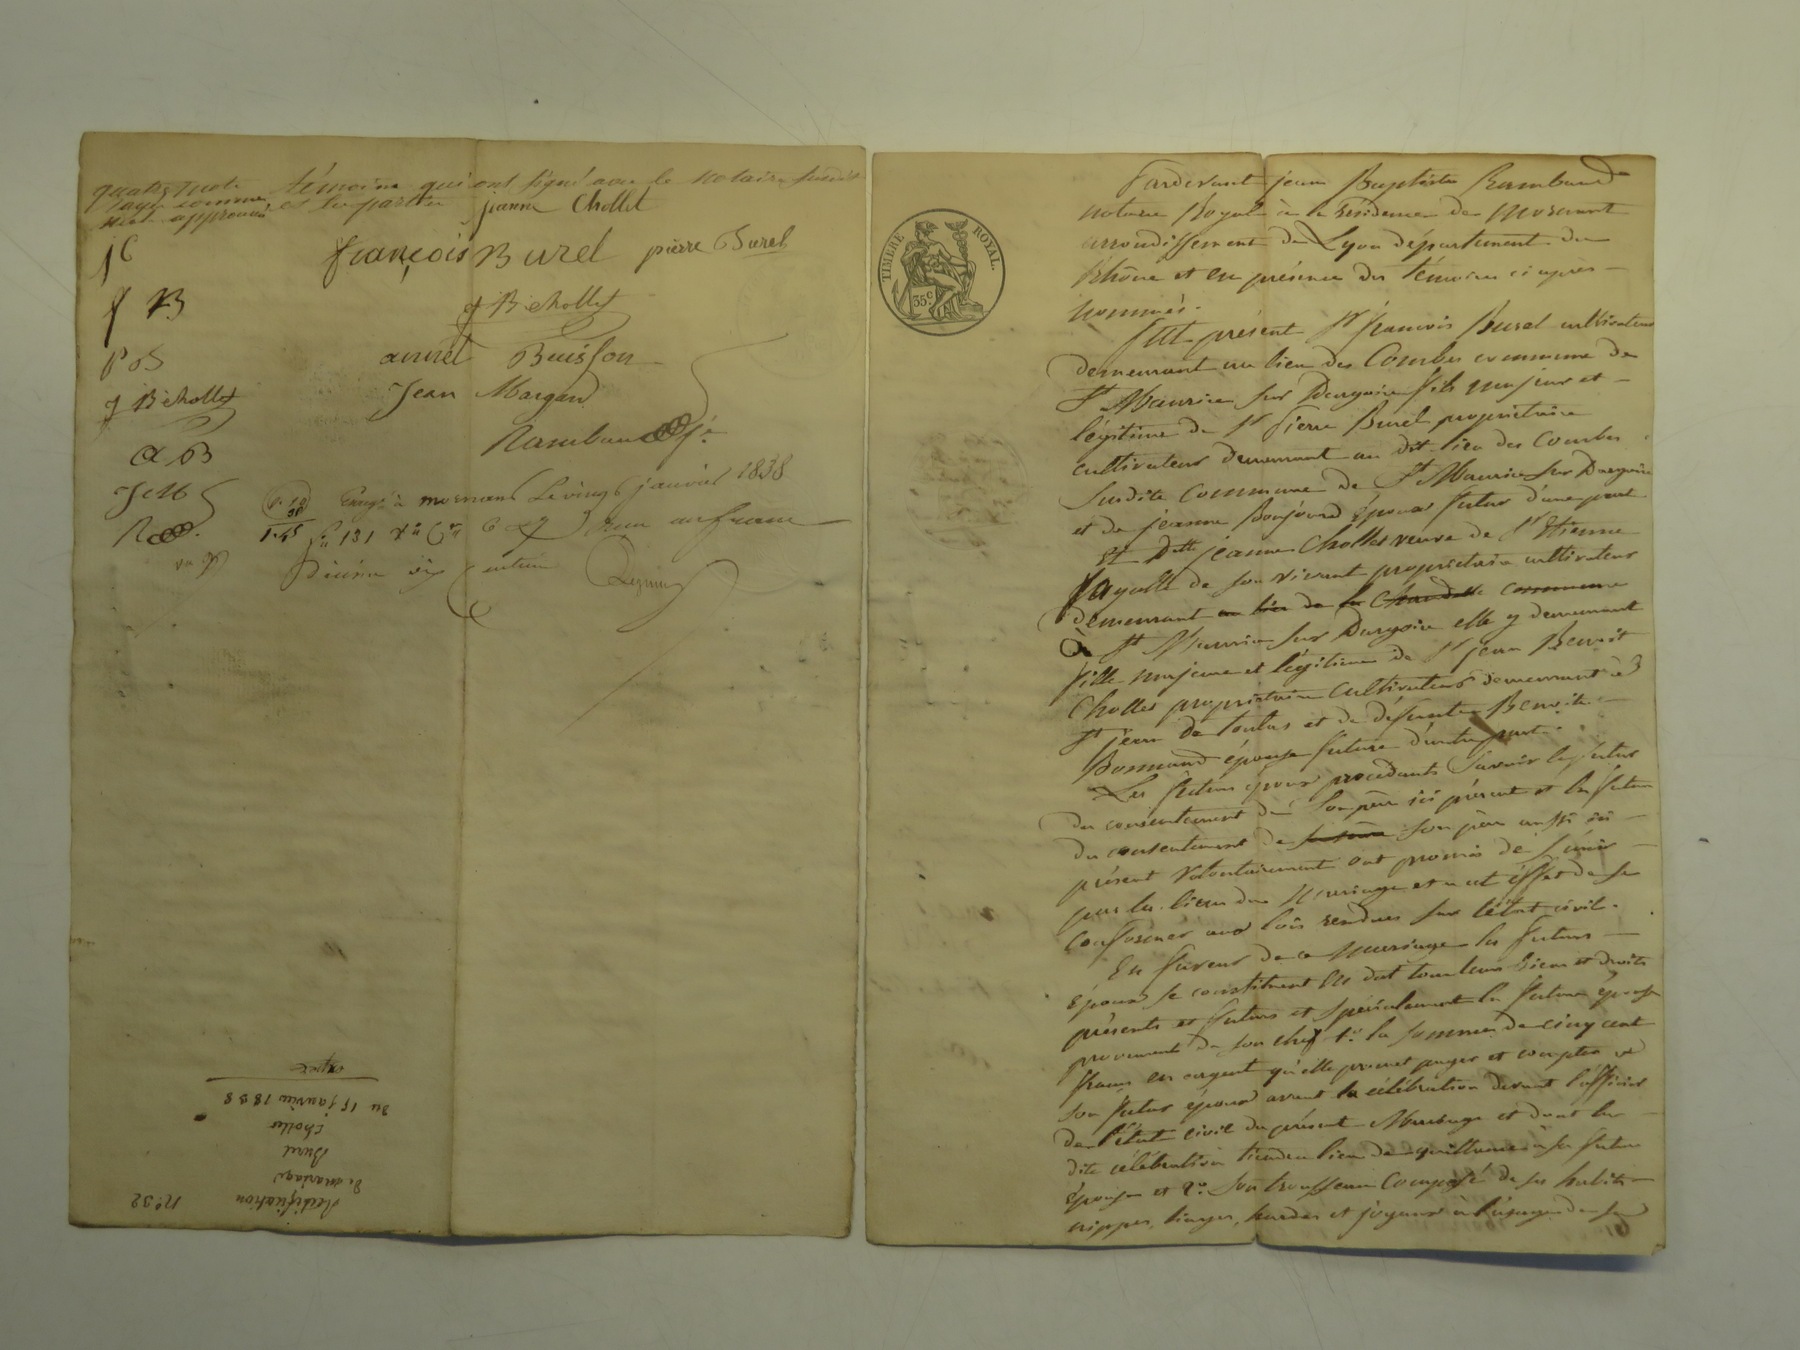 quatre mots
rayés comme
nuls approuvés
témoins qui ont signé avec le notaire susdit
et les parties jeanne Chollet
françois Burel pierre Burel
J C
f B
P B
J B chollet
annet Buisson
Jean Margand
J B chollet
Rambaud
A B
J M
R
Enregé à mornant Le vingt janvier 1838
fo 131 Ro Cen 6 & 7 Reçu un franc
1.45
décime dix centimes
expée
du 15 janvier 1838
Chollet
Burel
de mariage
Rédification
No 32
TIMBRE ROYAL.
35 c
Pardevant jean Baptiste Rambaud
notaire Royal à la Résidence de Mornant
arrondissement de Lyon département du
Rhône et en présence des témoins ci après
nommés.
Fut présent Sr françois Burel cultivateur
demeurant au lieu des Combes commune de
St Maurice sur Dargoire fils majeur et
légitime de Sr Pierre Burel propriétaire
cultivateur demeurant au dit lieu des Combes
susdite commune de St Maurice sur Dargoire
et de jeanne Bonjour époux futur d'une part
Et Dlle jeanne Chollet veuve de Sr Etienne
fayolle de son vivant propriétaire cultivateur
demeurant au lieu de la commune
à St Maurice sur Dargoire elle y demeurant
fille majeure et légitime de Sr jean Benoit
Chollet propriétaire cultivateur demeurant à
St jean de toulas et de défunte Benoite
Bonnand épouse future d'autre part.
Les futurs époux procédants savoir le futur
du consentement de son père ici présent et la future
du consentement de son père aussi ici
présent volontairement ont promis de s'unir
par les liens du Mariage et à cet effet de se
conformer aux lois rendues sur l'état civil.
En faveur de ce mariage les futurs
époux se constituent en dot tous leurs biens et droits
présents et futurs et spécialement la future épouse
provenants de son chef 1o la somme de cinq cent
francs en argent qu'elle promet payer et compter à
son futur époux avant la célébration devant l'officier
de l'état civil du présent Mariage et dont la
dite célébration tiendra lieu de quittance à la future
épouse et 2o son trousseau composé de ses habits
nippes, linges, hardes et joyaux à l'usage de sa